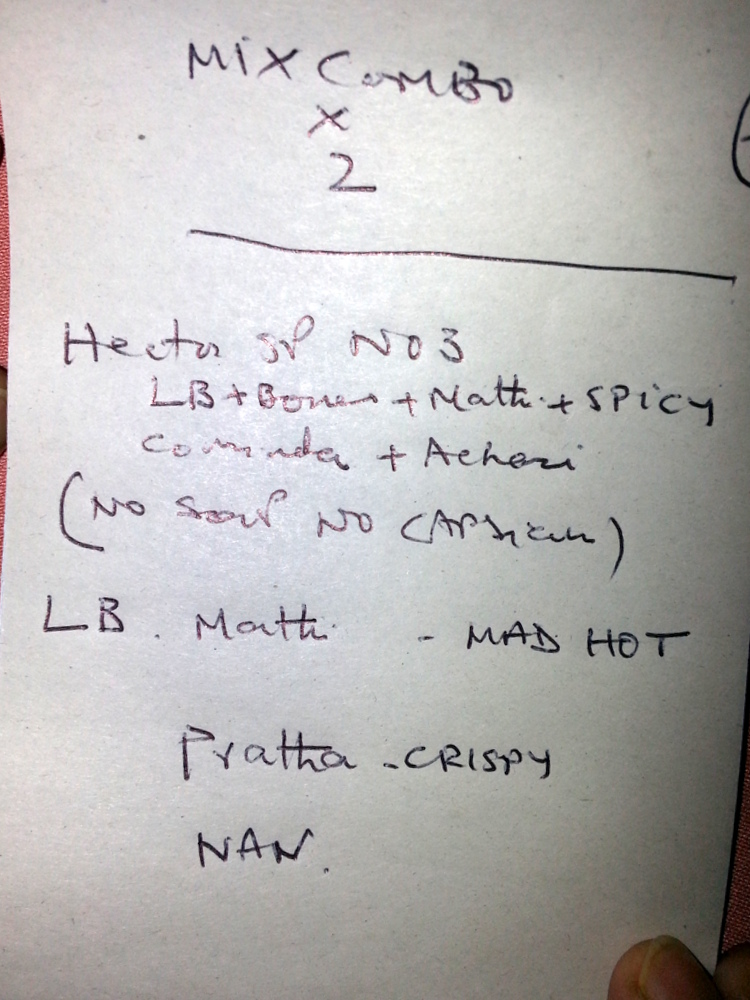 MIX COMBO
X
2
Hector SP NO3
LB + Bones + Math. + SPICY
+ Achari
(NO Sauf NO CAPSicum)
LB. Math. - MAD HOT
Pratha - CRISPY
NAN.